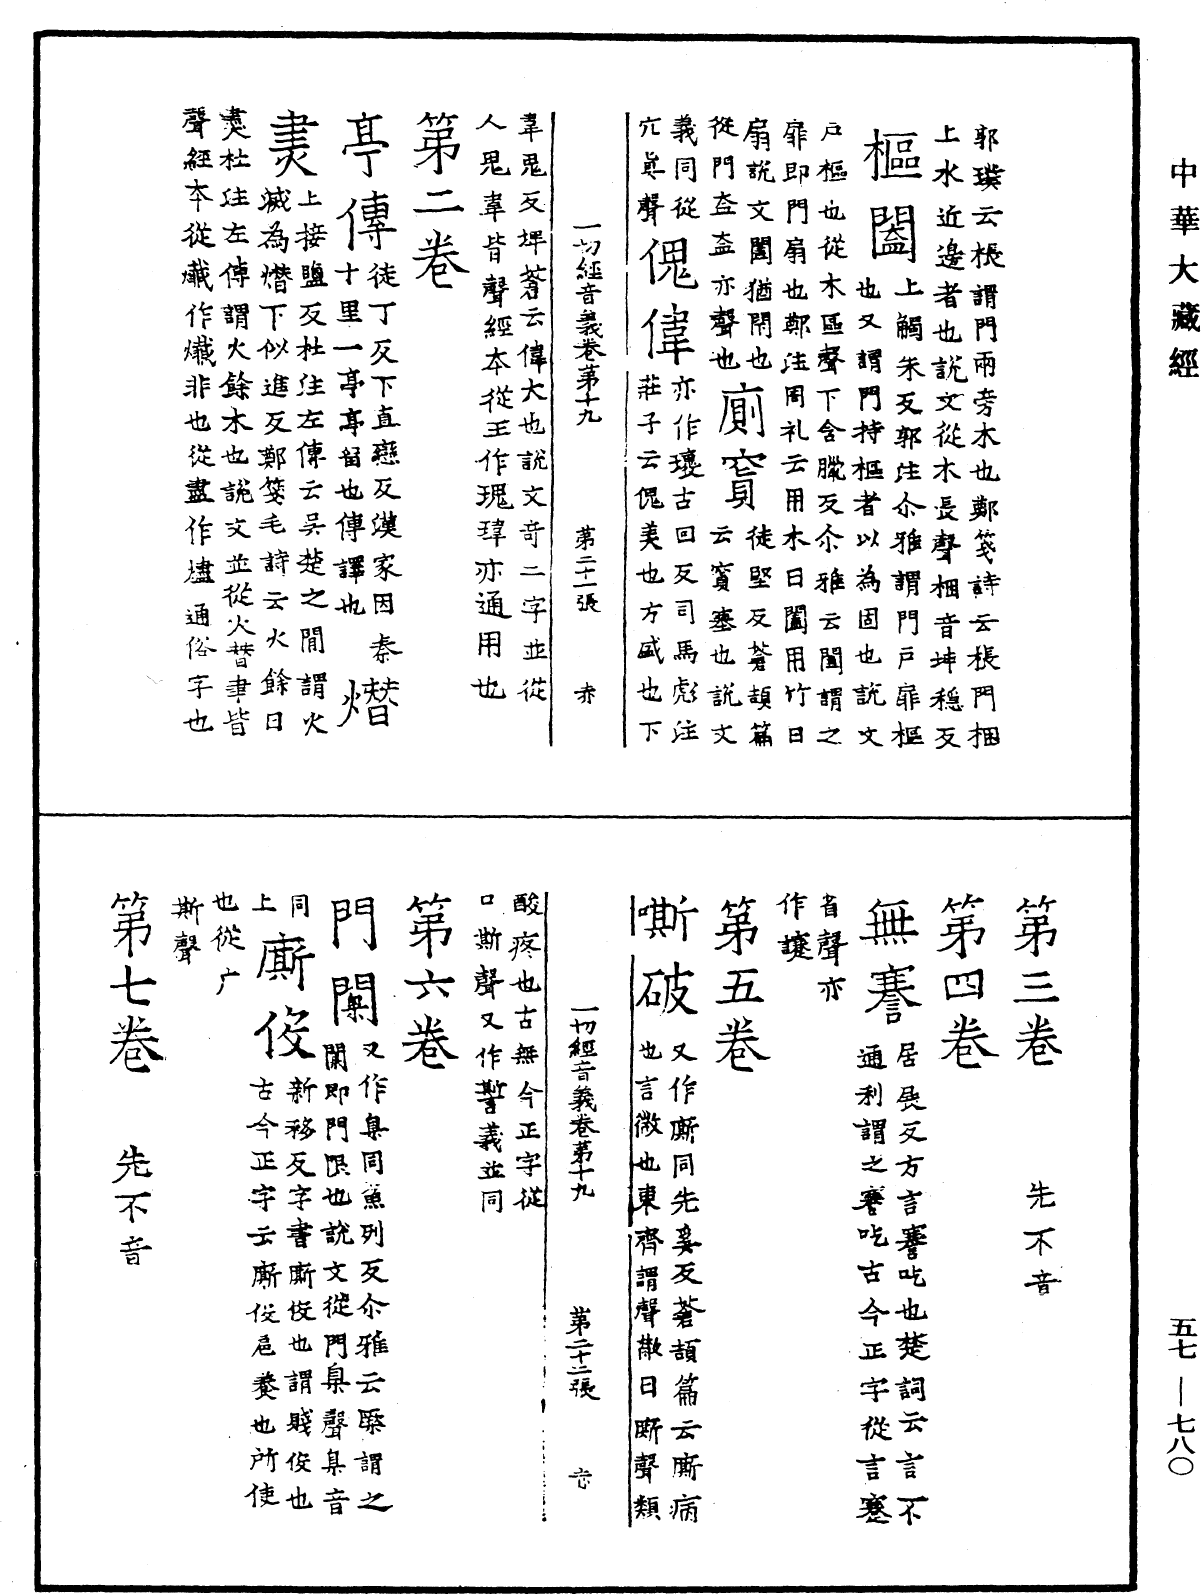 中華大藏經
郭璞云棖謂門兩旁木也鄭箋詩云棖門梱
上水近邊者也說文從木長聲梱音坤穩反
樞闔上觸朱反郭注尒雅謂門戶扉樞
也又謂門持樞者以為固也說文
戶樞也從木區聲下含臘反尒雅云闔謂之
扉即門扇也鄭注周礼云用木曰闔用竹曰
扇說文闔猶閇也廁窴徒堅反蒼頡篇
從門盇盇亦聲也云窴塞也說文
義同從傀偉亦作瓌古回反司馬彪注
穴真聲莊子云傀美也方盛也下
一切經音義卷第十九 第二十一張 亦
韋鬼反埤蒼云偉大也說文奇二字並從
人鬼韋皆聲經本從王作瑰瑋亦通用也
第二卷
亭傳徒丁反下直戀反漢家因秦
十里一亭亭留也傳譯也熸
㶳上接鹽反杜注左傳云吳楚之閒謂火
滅為熸下似進反鄭箋毛詩云火餘曰
㶳杜注左傳謂火餘木也說文並從火朁聿皆
聲經本從爁作爁非也從盡作燼通俗字也
第三卷 先不音
第四卷
無謇居展反方言謇吃也楚詞云言不
通利謂之謇吃古今正字從言蹇
省聲亦
作讓
第五卷
嘶破又作廝同先奚反蒼頡篇云廝病
也言微也東齊謂聲散曰嘶聲類
一切經音義卷第十九 第二十二張
酸疼也古無今正字從
口斯聲又作㽄義並同
第六卷
門闑又作臬同魚列反尒雅云橜謂之
闑即門限也說文從門臬聲臬音
同廝伇新移反字書廝伇也謂賤伇也
上古今正字云廝伇扈養也所使
也從广
斯聲
第七卷 先不音
五七—七八〇